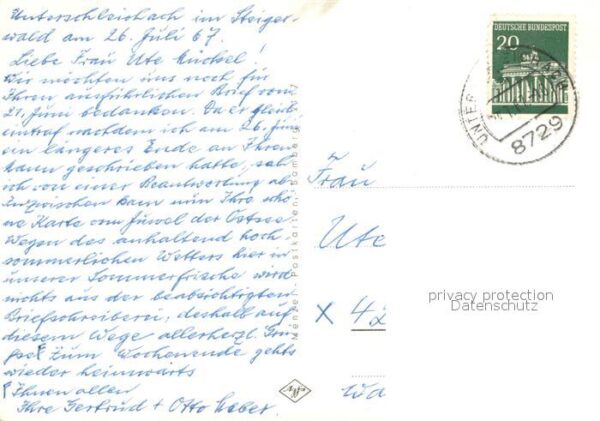 Unterschleichach im Steiger-
wald am 26. Juli 67.
Liebe Frau Ute Mücksel!
Wir möchten uns noch für
Ihren ausführlichen Brief vom
21. Juni bedanken. Da er
nachdem ich am 26. Juni
ein längeres Ende an Ihren
Mann geschrieben hatte, sah
ich von einer Beantwortung ab.
Inzwischen kam nun Ihre schö-
ne Karte vom Juwel der Ostsee.
Wegen des anhaltend hoch-
sommerlichen Wetters hier in
unserer Sommerfrische wird
nichts aus der beabsichtigten
Briefschreiberei, deshalb auf
diesem Wege allerherzl. Grü-
ße! Zum Wochenende gehts
wieder heimwärts
Ihnen allen
Ihre Gertrud + Otto Weber.
Menzel-Postkarten, Bamberg
Agfa
DEUTSCHE BUNDESPOST
20
UNTER
8729
Frau
Ute
X 42
Wa
privacy protection
Datenschutz